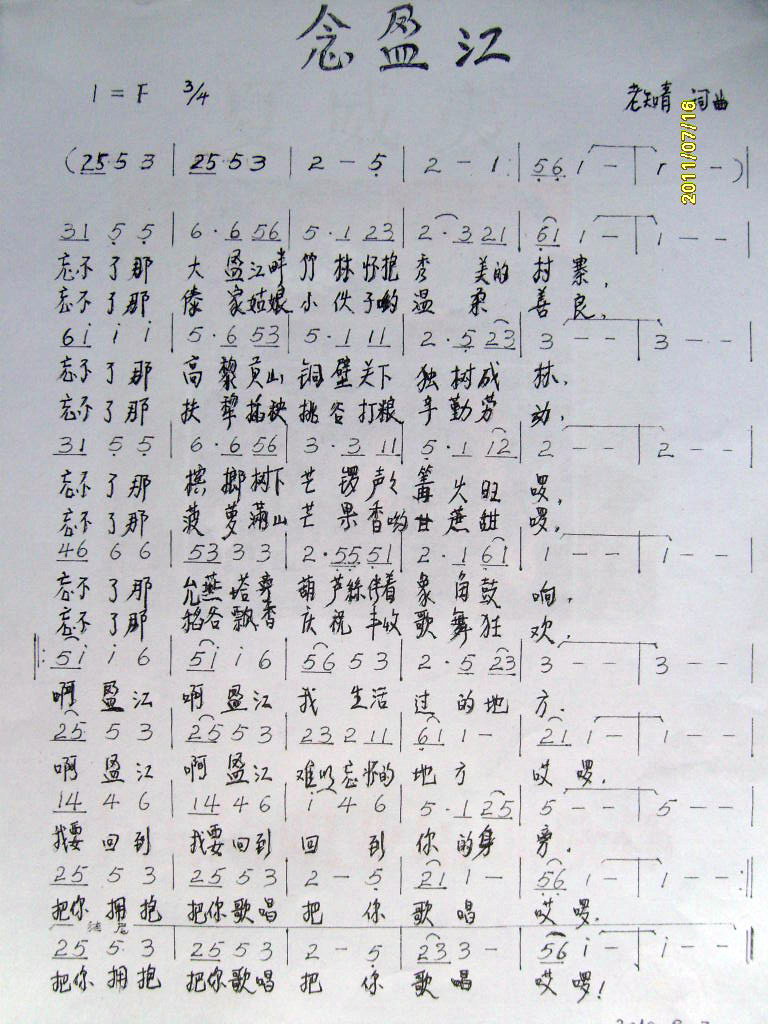 念盈江
1 = F 3/4 老知青 词曲
2011/07/16
(25·5 3 | 25·5 3 | 2 - 5 | 2 - 1 | 56 1 - | 1 - - )|
31 5 5 | 6·6 56 | 5·1 23 | 2·3 21 | 61 1 - | 1 - -
忘不了那 大盈江畔 竹林怀抱 秀 美的 村寨，
忘不了那 傣家姑娘 小伙子哟 温柔 善良，
6i i i | 5·6 53 | 5·1 11 | 2·5 23 | 3 - - | 3 - -
忘不了那 高黎贡山 铜壁关下 独树成 林，
忘不了那 扶犁插秧 挑谷打粮 辛勤劳 动，
31 5 5 | 6·6 56 | 3·3 11 | 5·1 12 | 2 - - | 2 - -
忘不了那 槟榔树下 芒锣声声 篝火旺 啰，
忘不了那 菠萝满山 芒果香哟 甘蔗甜 啰，
46 6 6 | 53 3 3 | 2·55 51 | 2·1 61 | 1 - - | 1 - -
忘不了那 允燕塔旁 葫芦丝伴着 象角鼓 响，
忘不了那 稻谷飘香 庆祝丰收 歌舞狂 欢，
‖: 51 i 6 | 51 i 6 | 56 5 3 | 2·5 23 | 3 - - | 3 - -
啊 盈江 啊 盈江 我 生活 过的地 方．
25 5 3 | 25 5 3 | 23 2 11 | 61 1 - | 21 1 - | 1 - -
啊 盈江 啊 盈江 难以忘怀的 地方 哎啰．
14 4 6 | 14 4 6 | i 4 6 | 5·1 25 | 5 - - | 5 - -
我要 回到 我要回到 回 到 你的身 旁．
25 5 3 | 25 5 3 | 2 - 5 | 21 1 - | 56 1 - | 1 - - :‖
把你 拥抱 把你歌唱 把 你 歌唱 哎啰．
25 5·3 | 25 5 3 | 2 - 5 | 23 3 - | 56 i - | i - - ‖
把你 拥抱 把你歌唱 把 你 歌唱 哎啰！